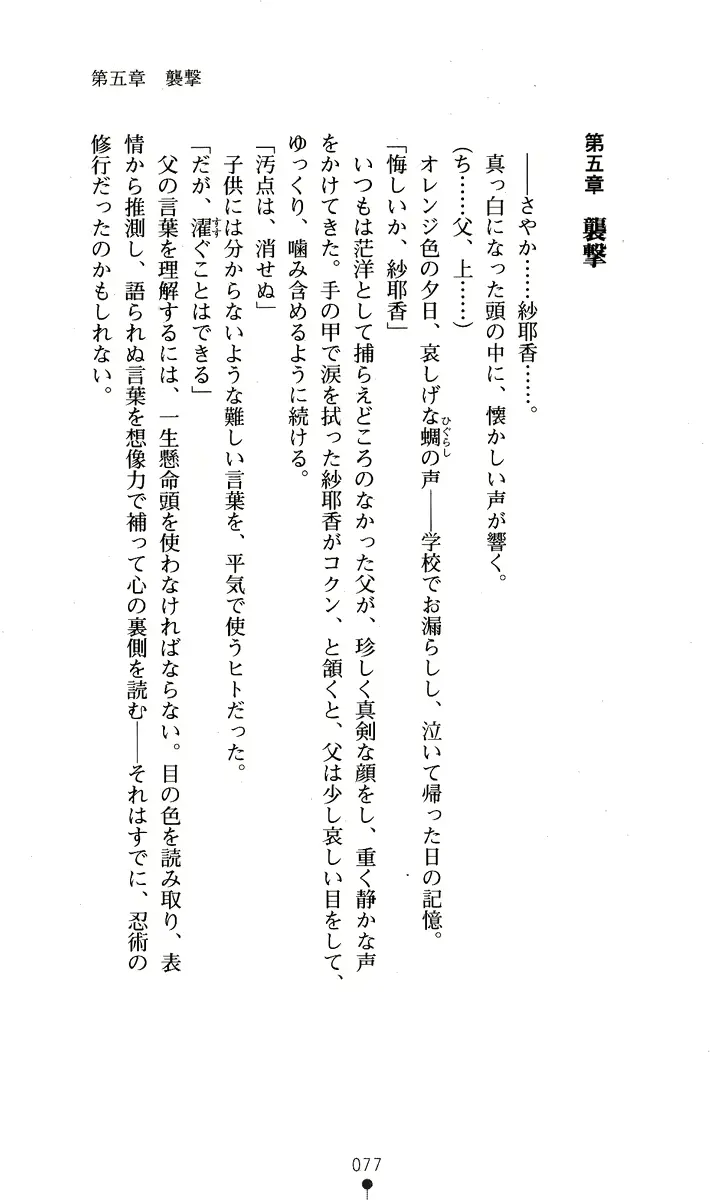 第五章　襲撃
第五章　襲撃
――さやか……紗耶香……。
真っ白になった頭の中に、懐かしい声が響く。
(ち……父、上……)
オレンジ色の夕日、哀しげな蜩の声――学校でお漏らしし、泣いて帰った日の記憶。
ひぐらし
「悔しいか、紗耶香」
いつもは茫洋として捕らえどころのなかった父が、珍しく真剣な顔をし、重く静かな声
をかけてきた。手の甲で涙を拭った紗耶香がコクン、と頷くと、父は少し哀しい目をして、
ゆっくり、噛み含めるように続ける。
「汚点は、消せぬ」
子供には分からないような難しい言葉を、平気で使うヒトだった。
「だが、濯ぐことはできる」
すす
父の言葉を理解するには、一生懸命頭を使わなければならない。目の色を読み取り、表
情から推測し、語られぬ言葉を想像力で補って心の裏側を読む――それはすでに、忍術の
修行だったのかもしれない。
077